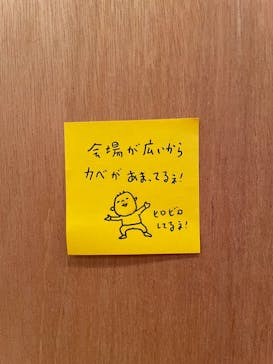 会場が広いから
カベが あまってるぇ!
ヒロビロ
してるぇ!